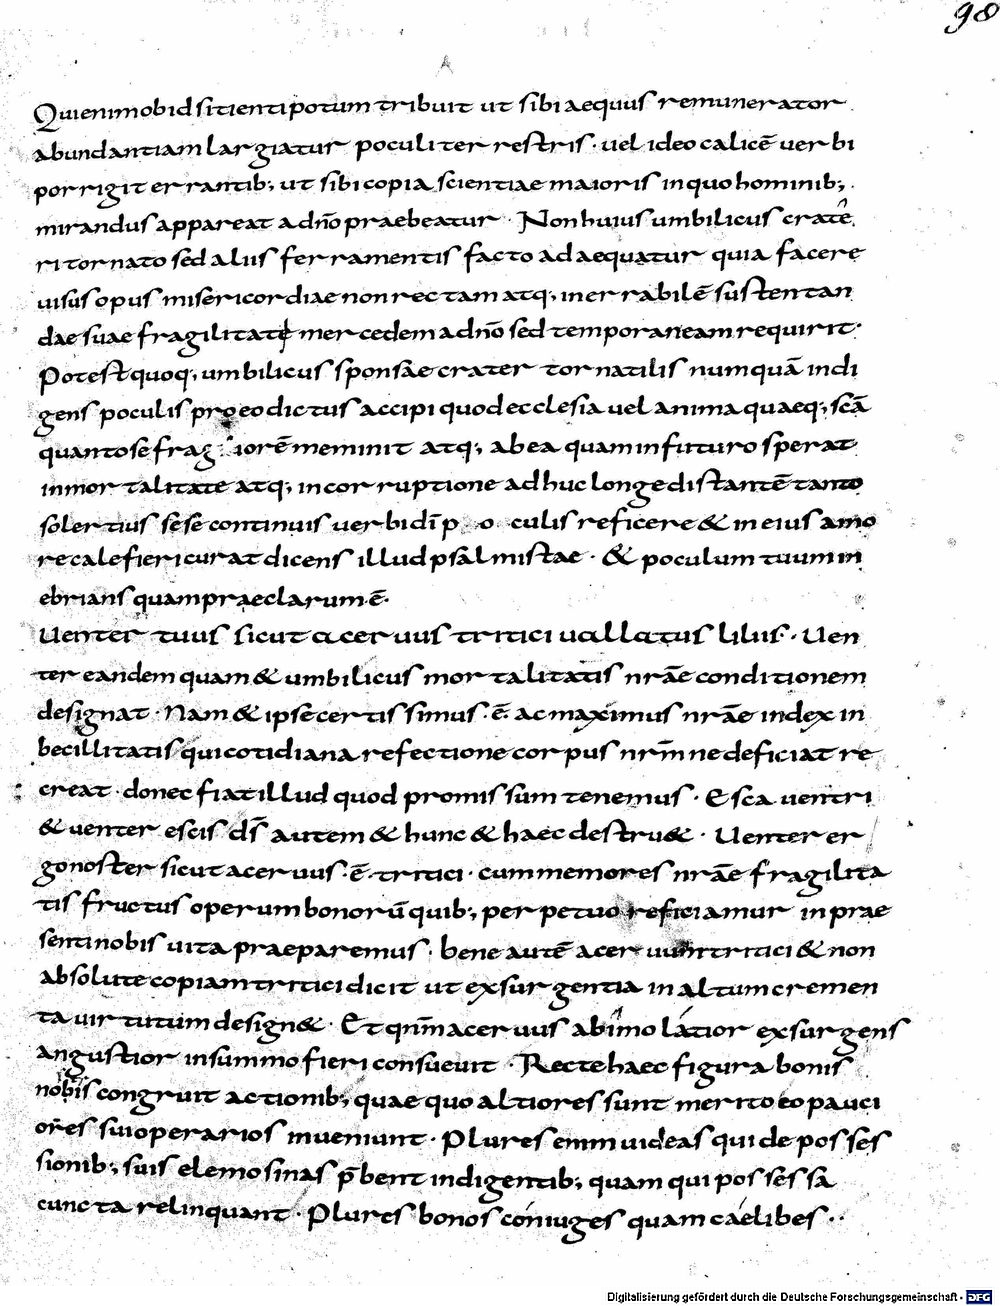 98
Qui enim ob id sitienti potum tribuit ut sibi aequus remunerator
abundantiam largiatur poculi terrestris · vel ideo calicē verbi
porrigit errantib; ut sibi copia scientiae maioris in quo hominib;
mirandus appareat a dn̄o praebeatur · Non huius umbilicus cratē
ri tornato sed aliis ferramentis facto adaequatur quia facere
visus opus misericordiae non rectam atq; inerrabilē sustentan
dae suae fragilitate mercedem a dn̄o sed temporaneam requirit ·
Potest quoq; umbilicus sponsae crater tornatilis numquā indi
gens poculis pro eo dictus accipi quod ecclesia vel anima quaeq; scā
quanto se frag iorē meminit atq; ab ea quam in futuro sperat
inmortalitate atq; incorruptione adhuc longe distantē tanto
solertius sese continuis verbi dī p o culis reficere & in eius amo
re calefieri curat dicens illud psalmistae · & poculum tuum in
ebrians quam praeclarum ē ·
Venter tuus sicut acervus tritici vallatus liliis · Ven
ter eandem quam & umbilicus mortalitatis nrāe conditionem
designat · Nam & ipse certissimus · ē · ac maximus nrāe index in
becillitatis qui cotidiana refectione corpus nrm̄ ne deficiat re
creat · donec fiat illud quod promissum tenemus · Esca ventri
& venter escis ds̄ autem & hunc & haec destru& · Venter er
go noster sicut acervus · ē · tritici · cum memores nrāe fragilita
tis fructus operum bonorū quib; perpetuo reficiamur in prae
senti nobis vita praeparemus · bene autē acervum tritici & non
absolute copiam tritici dicit ut exsurgentia in altum cremen
ta virtutum design& · Et qnm̄ acervus ab imo latior exsurgens
angustior in summo fieri consuevit · Recte haec figura bonis
nobis congruit actionib; quae quo altiores sunt merito eo pauci
ores sui operarios inveniunt · Plures enim videas qui de posses
sionib; suis elemosinas p̄bent indigentib; quam qui possessa
cuncta relinquant · Plures bonos coniuges quam caelibes ··
Digitalisierung gefördert durch die Deutsche Forschungsgemeinschaft - DFG